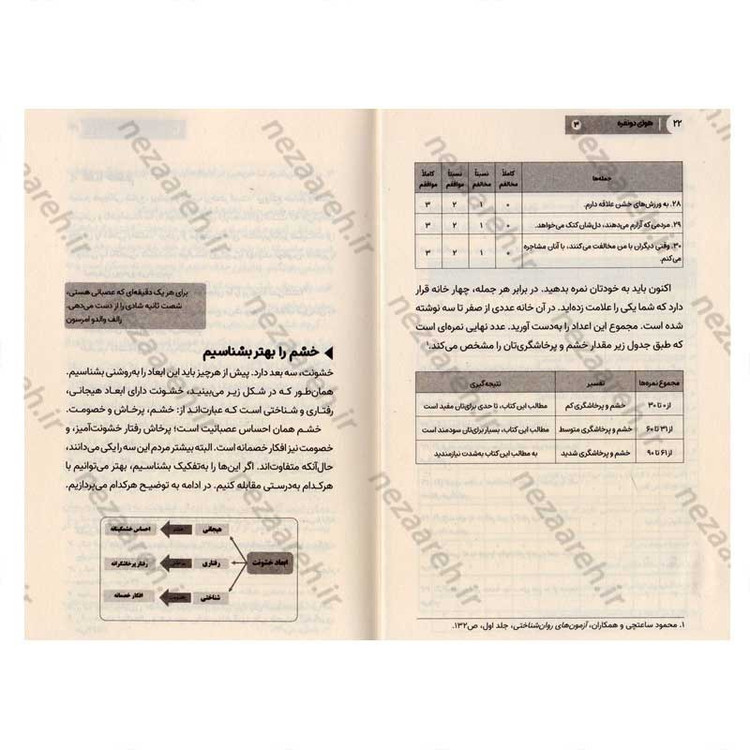 ۲۲ | هوای دونفره ۳
جمله‌ها | کاملاً مخالفم | نسبتاً مخالفم | نسبتاً موافقم | کاملاً موافقم
۲۸. به ورزش‌های خشن علاقه دارم. | ۰ | ۱ | ۲ | ۳
۲۹. مردمی که آزارم می‌دهند، دل‌شان کتک می‌خواهد. | ۰ | ۱ | ۲ | ۳
۳۰. وقتی دیگران با من مخالفت می‌کنند، با آنان مشاجره می‌کنم. | ۰ | ۱ | ۲ | ۳
اکنون باید به خودتان نمره بدهید. در برابر هر جمله، چهار خانه قرار
دارد که شما یکی را علامت زده‌اید. در آن خانه عددی از صفر تا سه نوشته
شده است. مجموع این اعداد را به‌دست آورید. عدد نهایی نمره‌ای است
که طبق جدول زیر مقدار خشم و پرخاشگری‌تان را مشخص می‌کند.۱
مجموع نمره‌ها | تفسیر | نتیجه‌گیری
از ۰ تا ۳۰ | خشم و پرخاشگری کم | مطالب این کتاب، تا حدی برای‌تان مفید است
از ۳۱ تا ۶۰ | خشم و پرخاشگری متوسط | مطالب این کتاب، بسیار برای‌تان سودمند است
از ۶۱ تا ۹۰ | خشم و پرخاشگری شدید | به مطالب این کتاب به‌شدت نیازمندید
۱. محمود ساعتچی و همکاران، آزمون‌های روان‌شناختی، جلد اول، ص۱۳۲.
برای هر یک دقیقه‌ای که عصبانی هستی،
شصت ثانیه شادی را از دست می‌دهی.
رالف والدو امرسون
خشم را بهتر بشناسیم
خشونت، سه بعد دارد. پیش از هرچیز باید این ابعاد را به‌روشنی بشناسیم.
همان‌طور که در شکل زیر می‌بینید، خشونت دارای ابعاد هیجانی،
رفتاری و شناختی است که عبارت‌اند از: خشم، پرخاش و خصومت.
خشم همان احساس عصبانیت است؛ پرخاش رفتار خشونت‌آمیز، و
خصومت نیز افکار خصمانه است. البته بیشتر مردم این سه را یکی می‌دانند،
حال‌آنکه متفاوت‌اند. اگر این‌ها را به‌تفکیک بشناسیم، بهتر می‌توانیم با
هرکدام به‌درستی مقابله کنیم. در ادامه به توضیح هرکدام می‌پردازیم.
ابعاد خشونت
هیجانی | خشم | احساس خشمگینانه
رفتاری | پرخاش | رفتار پرخاشگرانه
شناختی | خصومت | افکار خصمانه
nezaareh.ir